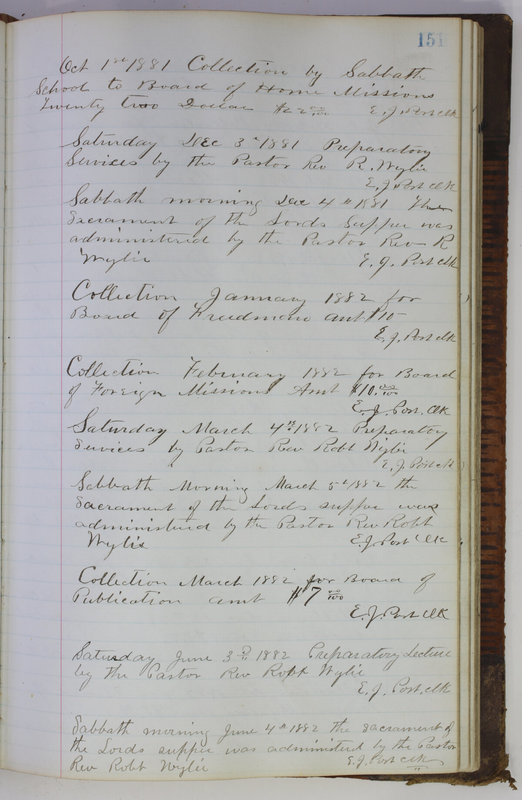 151
Oct 1st 1881 Collection by Sabbath
School to Board of Home Missions
Twenty two Dollar $22 00/100 E. J. Post clk
Saturday Dec 3rd 1881 Preparatory
Services by the Pastor Rev R. Wylie
E. J. Post clk
Sabbath morning Dec 4th 1881 The
Sacrament of the Lords Supper was
administered by the Pastor Rev R
Wylie E. J. Post clk
Collection January 1882 for
Board of Freedmen amt $10
E. J. Post clk
Collection February 1882 for Board
of Foreign Missions Amt $10. 00/100
E. J. Post. Clk
Saturday March 4th 1882 Preparatory
Services by Pastor Rev Robt Wylie
E. J. Post clk
Sabbath Morning March 5th 1882 the
Sacrament of the Lords supper was
administered by the Pastor Rev Robt
Wylie E. J. Post Clk
Collection March 1882 for Board of
Publication amt $7 00/100
E. J. Post Clk
Saturday June 3rd 1882 Preparatory Lecture
by the Pastor Rev Robt Wylie
E. J. Post. clk
Sabbath morning June 4th 1882 the Sacrament of
the Lords supper was administered by the Pastor
Rev Robt Wylie E. J. Post clk